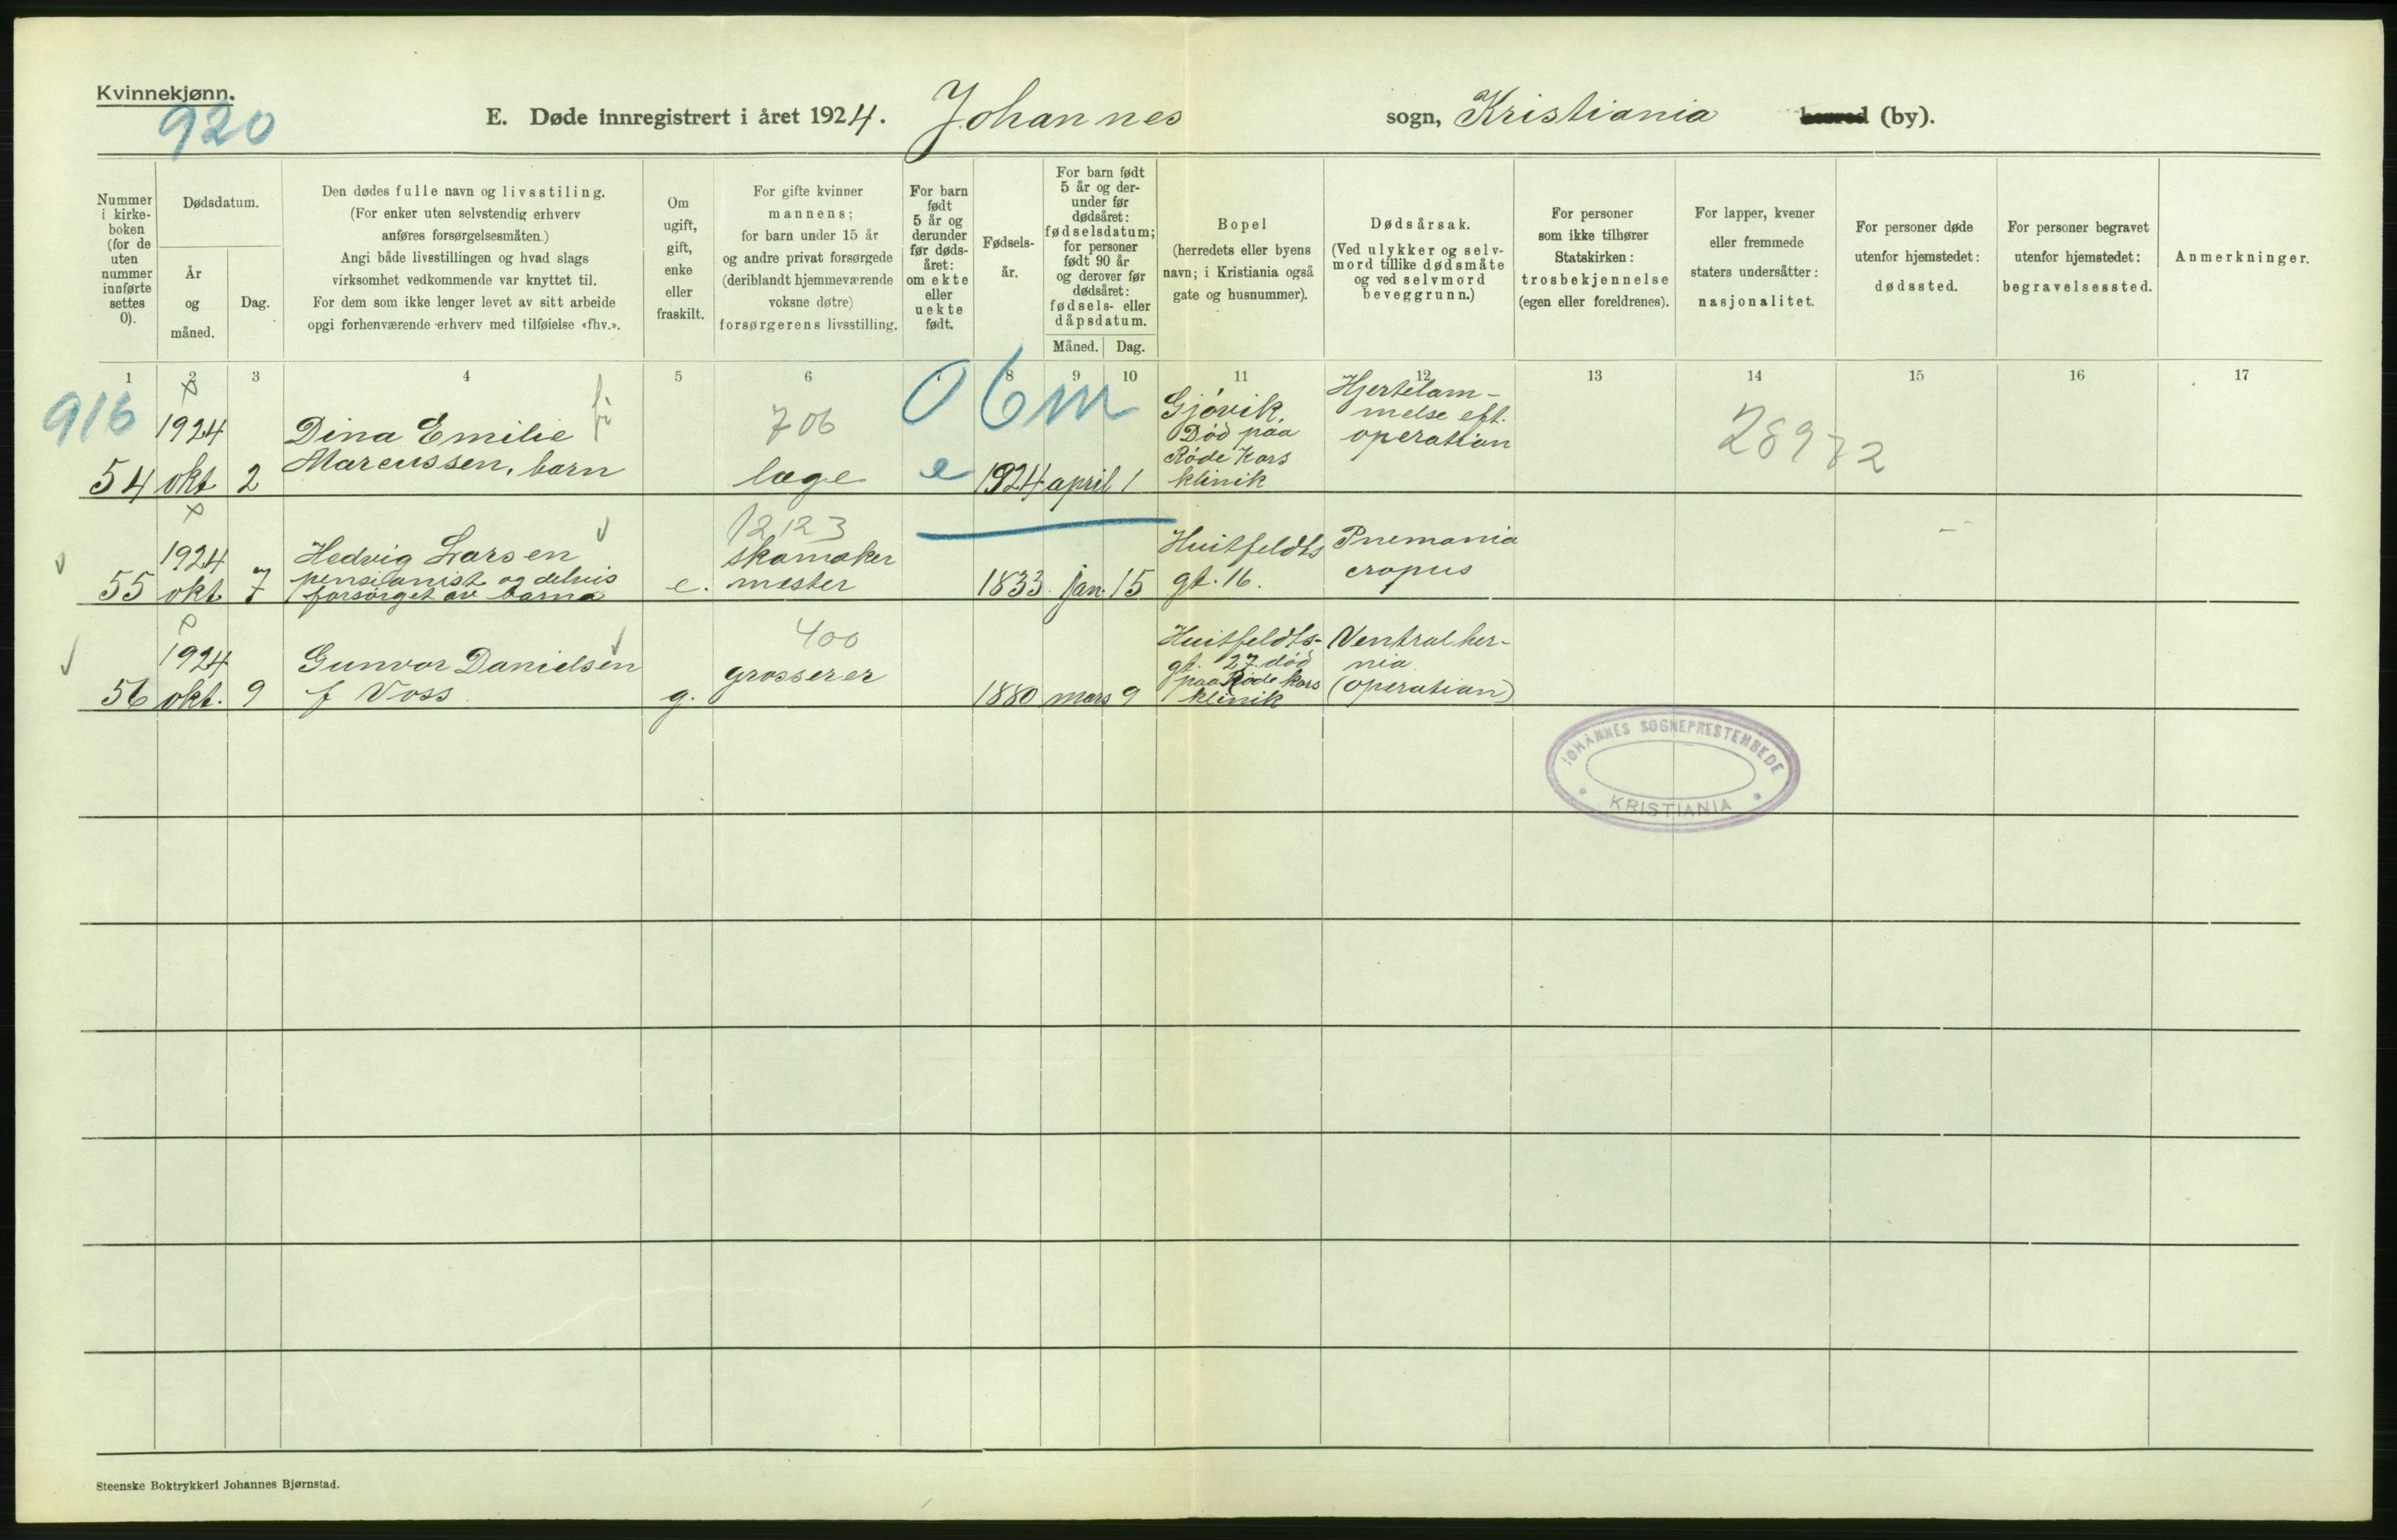 Kvinnekjønn.
920
E. Døde innregistrert i året 1924. Johannes sogn, Kristiania (by).
Nummer
i kirke-
boken
(for de
uten
nummer
innførte
settes
0).
Dødsdatum.
År
og
måned.
Dag.
Den dødes fulle navn og livsstiling.
(For enker uten selvstendig erhverv
anføres forsørgelsesmåten.)
Angi både livsstillingen og hvad slags
virksomhet vedkommende var knyttet til.
For dem som ikke lenger levet av sitt arbeide
opgi forhenværende erhverv med tilføielse «fhv.».
Om
ugift,
gift,
enke
eller
fraskilt.
For gifte kvinner
mannens;
for barn under 15 år
og andre privat forsørgede
(deriblandt hjemmeværende
voksne døtre)
forsørgerens livsstilling.
For barn
født
5 år og
derunder
før døds-
året:
om ekte
eller
uekte
født.
Fødsels-
år.
For barn født
5 år og der-
under før
dødsåret:
fødselsdatum;
for personer
født 90 år
og derover før
dødsåret:
fødsels- eller
dåpsdatum.
Måned. Dag.
Bopel
(herredets eller byens
navn; i Kristiania også
gate og husnummer).
Dødsårsak.
(Ved ulykker og selv-
mord tillike dødsmåte
og ved selvmord
beveggrunn.)
For personer
som ikke tilhører
Statskirken:
trosbekjennelse
(egen eller foreldrenes).
For lapper, kvener
eller fremmede
staters undersåtter:
nasjonalitet.
For personer døde
utenfor hjemstedet:
dødssted.
For personer begravet
utenfor hjemstedet:
begravelsessted.
Anmerkninger.
1 2 3 4 5 6 8 9 10 11 12 13 14 15 16 17
916
54
1924
okt
2
Dina Emilie
Marcussen, barn
706
læge
e
06m
1924 april 1
Gjøvik.
Död paa
Röde Kors
klinik
Hjertelam-
melse eft.
operation
28972
55
1924
okt.
7
Hedvig Larsen
pensionist og delvis
forsörget av barna
e.
12123
skomaker
mester
1833 jan. 15
Huitfeldts
gt. 16.
Pnemonia
croopus
56
1924
okt.
9
Gunvor Danielsen
f Voss
g.
400
grosserer
1880 mars 9
Huitfeldts-
gt. 27. död
paa Röde kors
klinik
Ventralher-
nia
(operation)
JOHANNES SOGNEPRESTEMBEDE
KRISTIANIA
Steenske Boktrykkeri Johannes Bjørnstad.